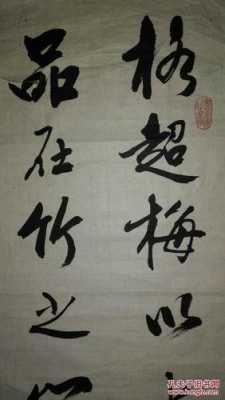 格超梅以
品在竹之
孔夫子旧书网